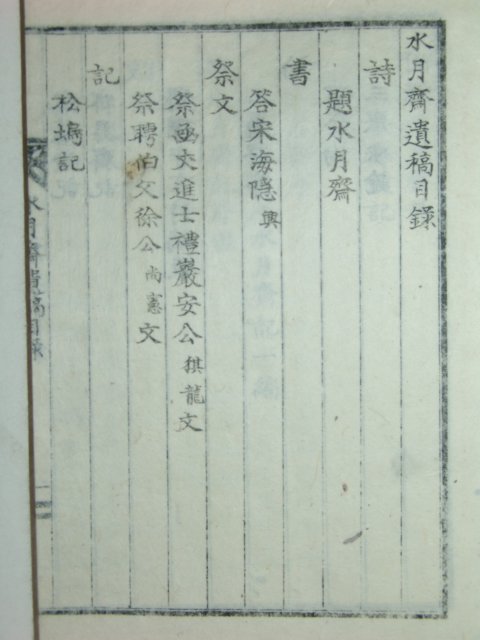 水月齋遺稿目錄
詩
題水月齋
書
答宋海隱
祭文
祭函丈進士禮巖安公祺龍文
祭聘伯父徐公尚憲文
記
松塢記
水月齋遺稿目錄